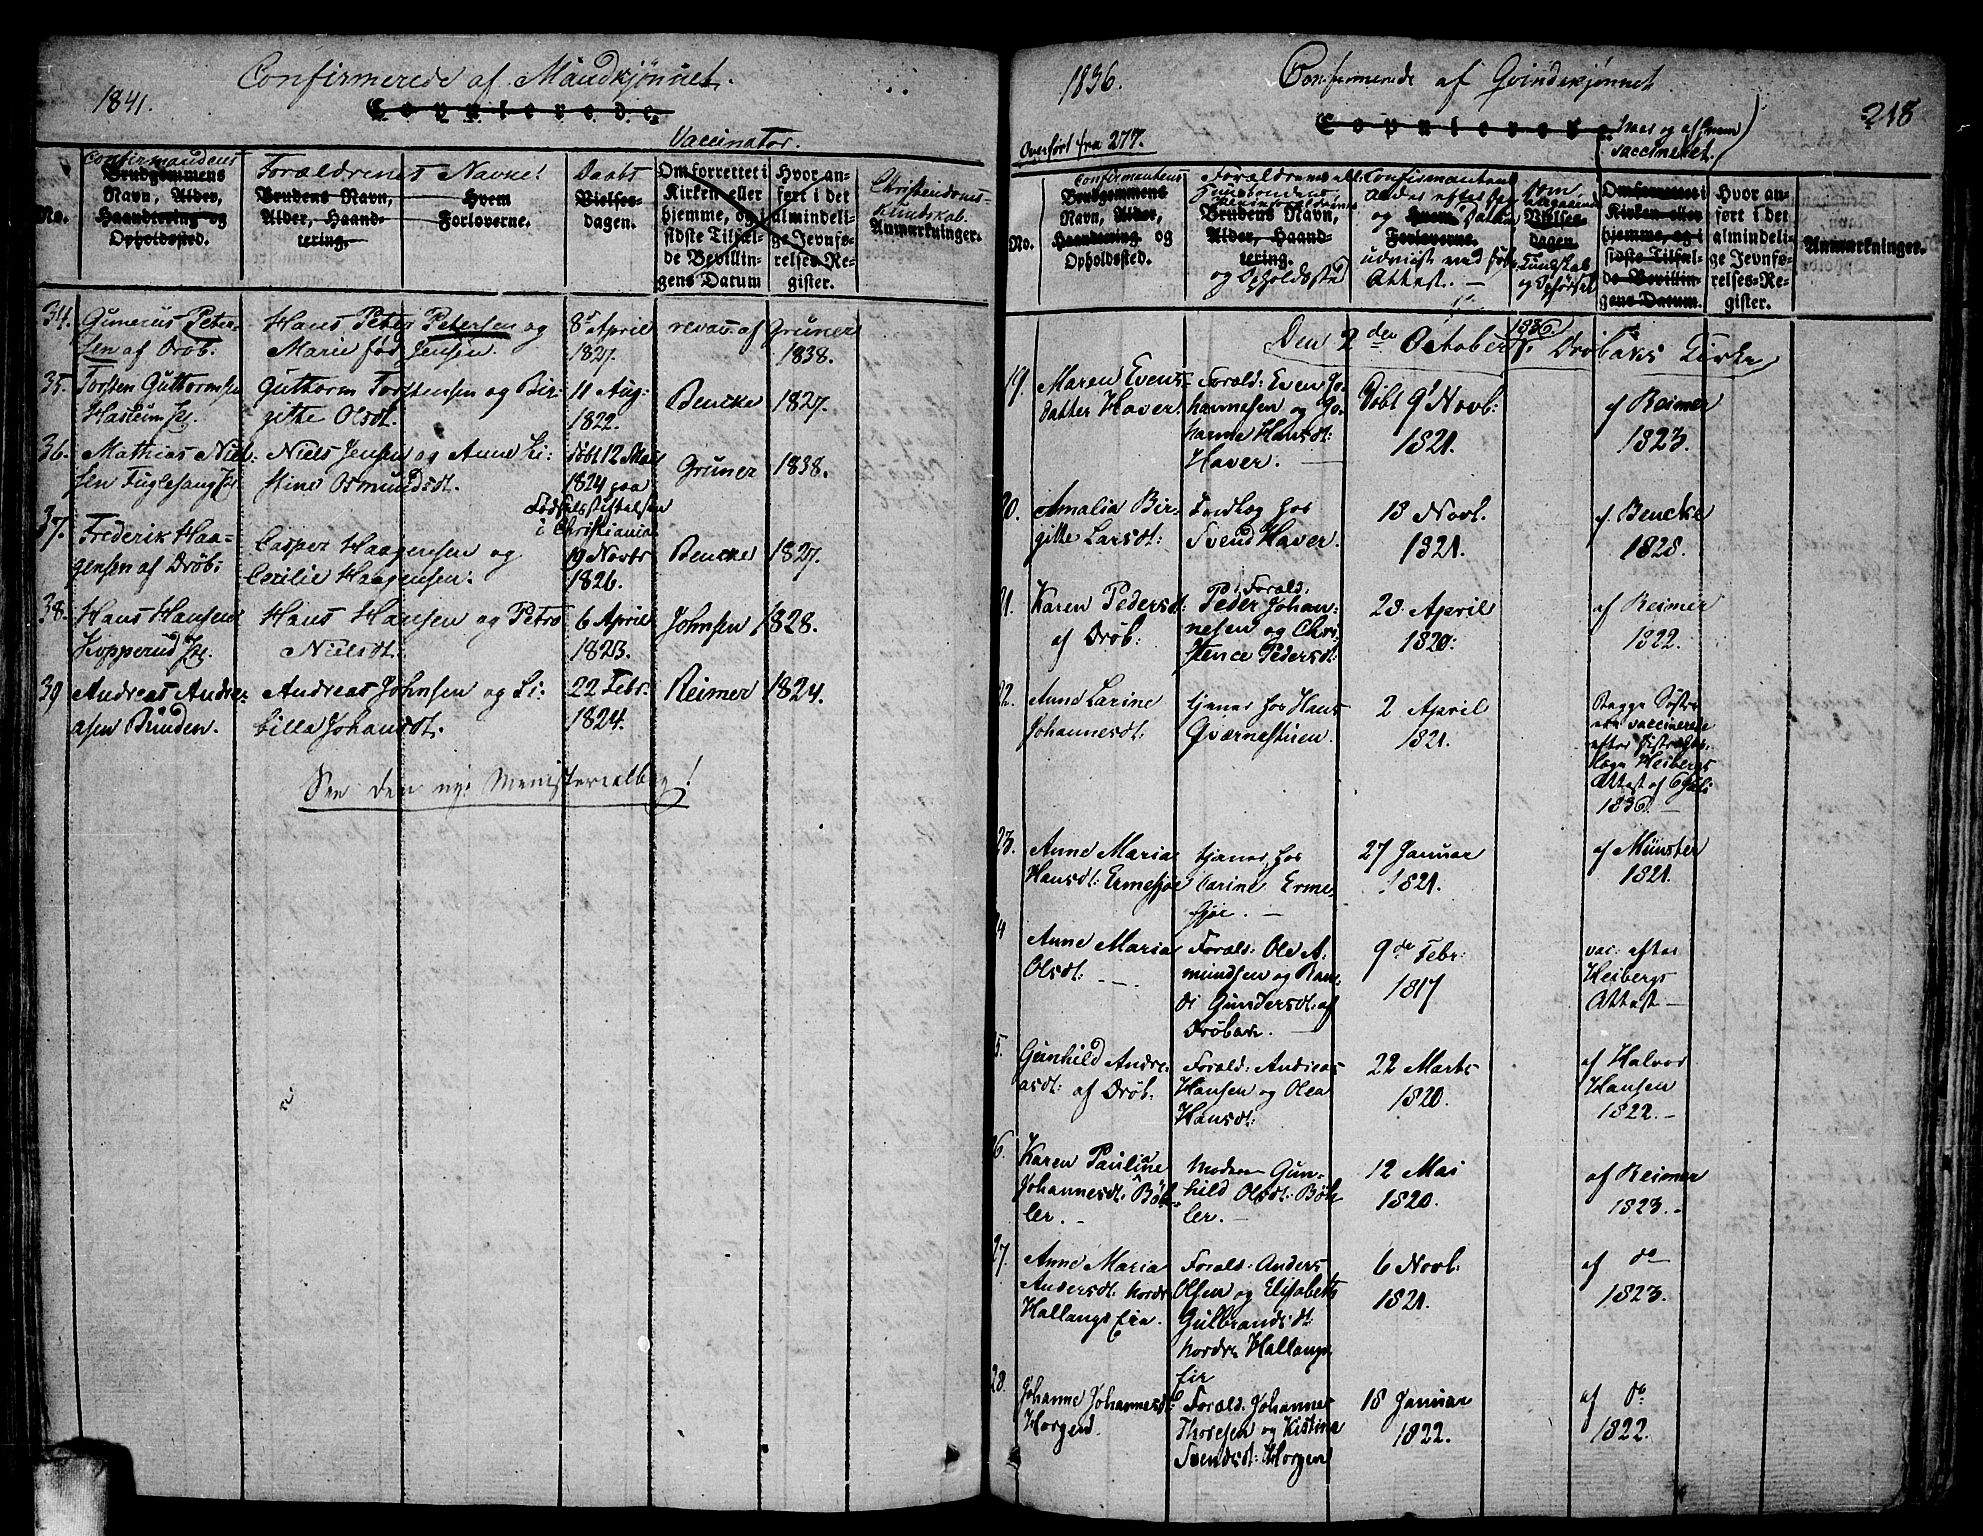 Confirmerede af Mandkjønnet.
1841.
Copulerede.
Vaccinator.
Confirmandens
Forældrenes Navne
Daabs
Christendoms-
Kundskab.
No.
Brudgommens
Navn, Alder,
Haandtering og
Opholdssted.
Brudens Navn,
Alder, Haand-
tering.
Hvem
Forloverne.
Vielses-
dagen.
Om forrettet i
Kirken eller
hjemme, og i
sidste Tilfæl-
de Bevillin-
gens Datum
Hvor an-
ført i det
almindeli-
ge Jevnfø-
relses-Re-
gister.
Anmærkninger.
34. Gunerus Peter-
sen af Drøb:
Hans Peter Petersen og
Marie fød Jensen.
8 April
1827.
revacc. af Gruner
1838.
35. Torsten Guthormsen
Haslum
Guthorm Torstensen og Bir-
gitte Olsdt.
11 Aug:
1822.
Bencke 1827.
36. Mathias Niel-
sen Fuglesang
Niels Jensen og Anne Li-
stine Osmundsdt.
døbt 12 Mai
1824 paa
Fødselsstiftelsen
i Christiania
Gruner 1838.
37. Frederik Haa-
gensen af Drøb:
Casper Haagensen og
Cecilie Haagensen.
19 Novbr
1826.
Bencke 1827.
38. Hans Hansen
Kopperud
Hans Hansen og Petro
Nielsdt.
6 April
1823.
Johnsen 1828.
39 Andreas Andre-
asen Bunden.
Andreas Johnsen og Li-
billa Johansdt.
22 Febr.
1824.
Reimer 1824.
See den nye Ministerialbog!
1836.
Confirmerede af Qvindekjønnet
218
Overført fra 217.
Copulerede
og af hvem
vaccineret.
Confirmantens
No.
Brudgommens
Navn, Alder,
Haandtering og
Opholdssted.
Forældrenes ell.
Brudens Navn,
Alder, Haand-
tering.
og Opholdsted
Confirmantens
Alder efter
og Hvem
Forloverne.
udviist ved
Attest. —
Vielses-
dagen.
Kundskab
og Opførsel
Om forrettet i
Kirken eller
hjemme, og i
sidste Tilfæl-
de Bevillin-
gens Datum.
Hvor an-
ført i det
almindeli-
ge Jevnfø-
relses-Re-
gister.
Anmærkninger.
Den 2den October 1836 i Drøbaks Kirke
19. Maren Evens-
datter Haver.
Foræld: Even Jo-
hannesen og Jo-
hanne Hansdt:
Haver. —
Døbt 9 Novb:
1821.
af Reimer
1823.
20. Amalia Bir-
gitte Larsdt:
Svend Haver.
13 Novb.
1821.
af Bencke
1828.
21. Karen Pedersdt:
af Drøb:
Foræld.
Peder Johan-
nesen og Chri-
stence Pedersdt:
23 April
1820.
af Reimer
1822.
22. Anne Larine
Johannesdt:
tjener hos Hans
Qværnestuen.
2 April
1821.
vaccinerede
efter Districts-
læge Heibergs
Attest af 6 Juli
1836. —
23. Anne Maria
Hansdt: Ermesjøe
tjener hos
Carine Erme-
sjøe. —
27 Januar
1821.
af Münster
1821.
24 Anne Maria
Olsdt:
Foræld: Ole A-
mundsen og Ran-
di Gundersdt: af
Drøbak. —
9de Febr:
1817
vac: efter
Heibergs
Attest —
25. Gunhild Andre-
asdt: af Drøb.
Foræld: Andreas
Hansen og Olea
Hansdt:
22 Marts
1820.
af Halvor
Hansen
1822. —
26. Karen Pauline
Johannesdt: Bøh-
ler. —
Moderen Gun-
hild Olsdt: Bøh-
ler. —
12 Mai
1820.
af Reimer
1823. —
27. Anne Maria
Andersdt: nordr
Hallangs Eie.
Foræld: Anders
Olsen og Elisabeth
Gulbrandsdt:
nordre Hallangs
Eie
6 Novb:
1821.
af do
1823.
28. Johanne Johannesdt:
Horgen.
Foræld: Johannes
Thoresen og Kistina
Svendsdt: Horgen
18 Januar
1822.
af do
1822.